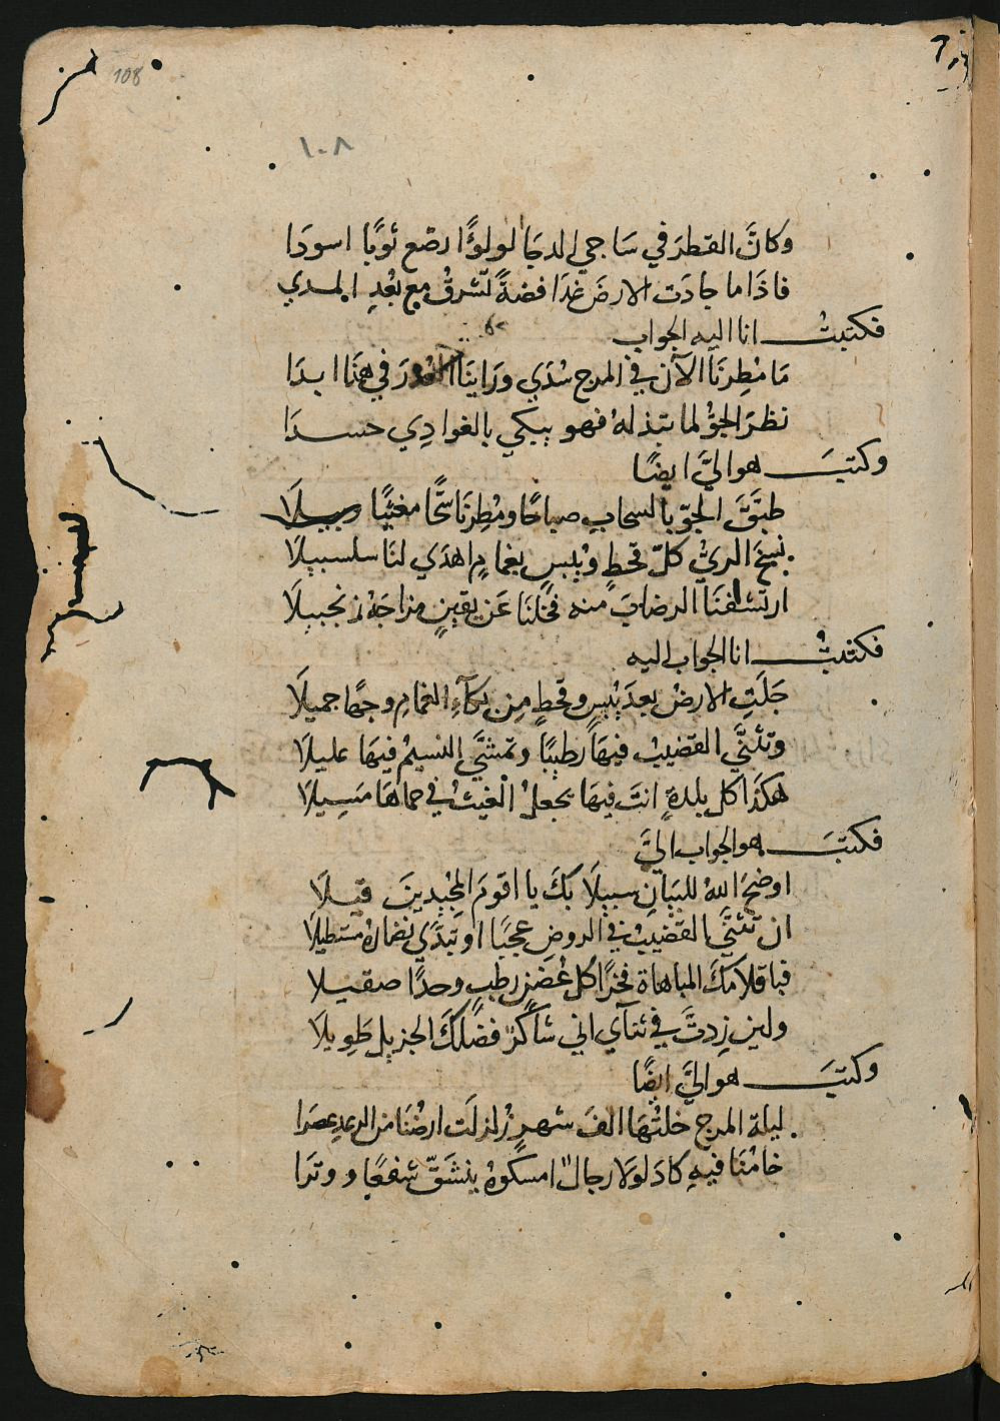 108
١٠٨
وكانَّ القطرَ في سَاجي الدجَا لولوًّا رصّع ثوبًا اسودَا
فاذَا ما جادَت الارضَ غدَا فضةً تُشرقُ مع بُعْدِ المدي
فكتبتُ انا اليه الجواب
مَا مُطِرنَا الآن في المرج سُدَي ورَاينَا في همَّنا ابدَا
نظرَ الجوُّ لما تبذلهُ فهو يبكي بالغوادِي حسدَا
وكتبَ هو اليَّ ايضًا
طبَّقَ الجوّ بالسحابِ صباحًا ومُطِرنَا سَحًّا مغثيًا وبيلَا
نسخَ الريُّ كلّ قحطٍ ويُبسٍ بغمامٍ اهدَي لنَا سلسبيلَا
ارتشفنَا الرضابَ منه فخلنَا عَن يقينٍ مزاجَهُ زنجبيلَا
فكتبتُ انا الجواب اليه
جَلَتِ الارضُ بعدَ يُبسٍ وقحطٍ مِن بكآءِ الغمامِ وجهًا جميلَا
وتثنَّي القضيبُ فيهَا رطيبًا وتمشَّي النسيمُ فيهَا عليلَا
هكذَا كل بلدةٍ انتَ فيهَا يجعلُ الغيثُ في حماهَا مَسِيلَا
فكتبَ هو الجواب اليَّ
اوضحَ اللهُ للبيَانِ سبيلَا بكَ يا اقومَ المجيدينَ قيلَا
ان تثنَّي القضيبُ في الروضِ عجبًا او تبدَّي نضارهُ مستطيلَا
فباقلامكَ المباهاة فخرًا كل غُصْنٍ رطبٍ وحدًا صقيلا
ولين زِدتَّ في ثنآي اني شاكرٌ فضلكَ الجزيل طَوِيلَا
وكتبَ هو اليَّ ايضًا
ليلة المرج خلتُهَا الفَ شهرٍ زُلزلَت ارضُنَا من الرعدِ عصرَا
خامُنَا فيهِ كادَ لولَا رجالٌ امسكوهُ ينشَقّ شفعًا ووترَا